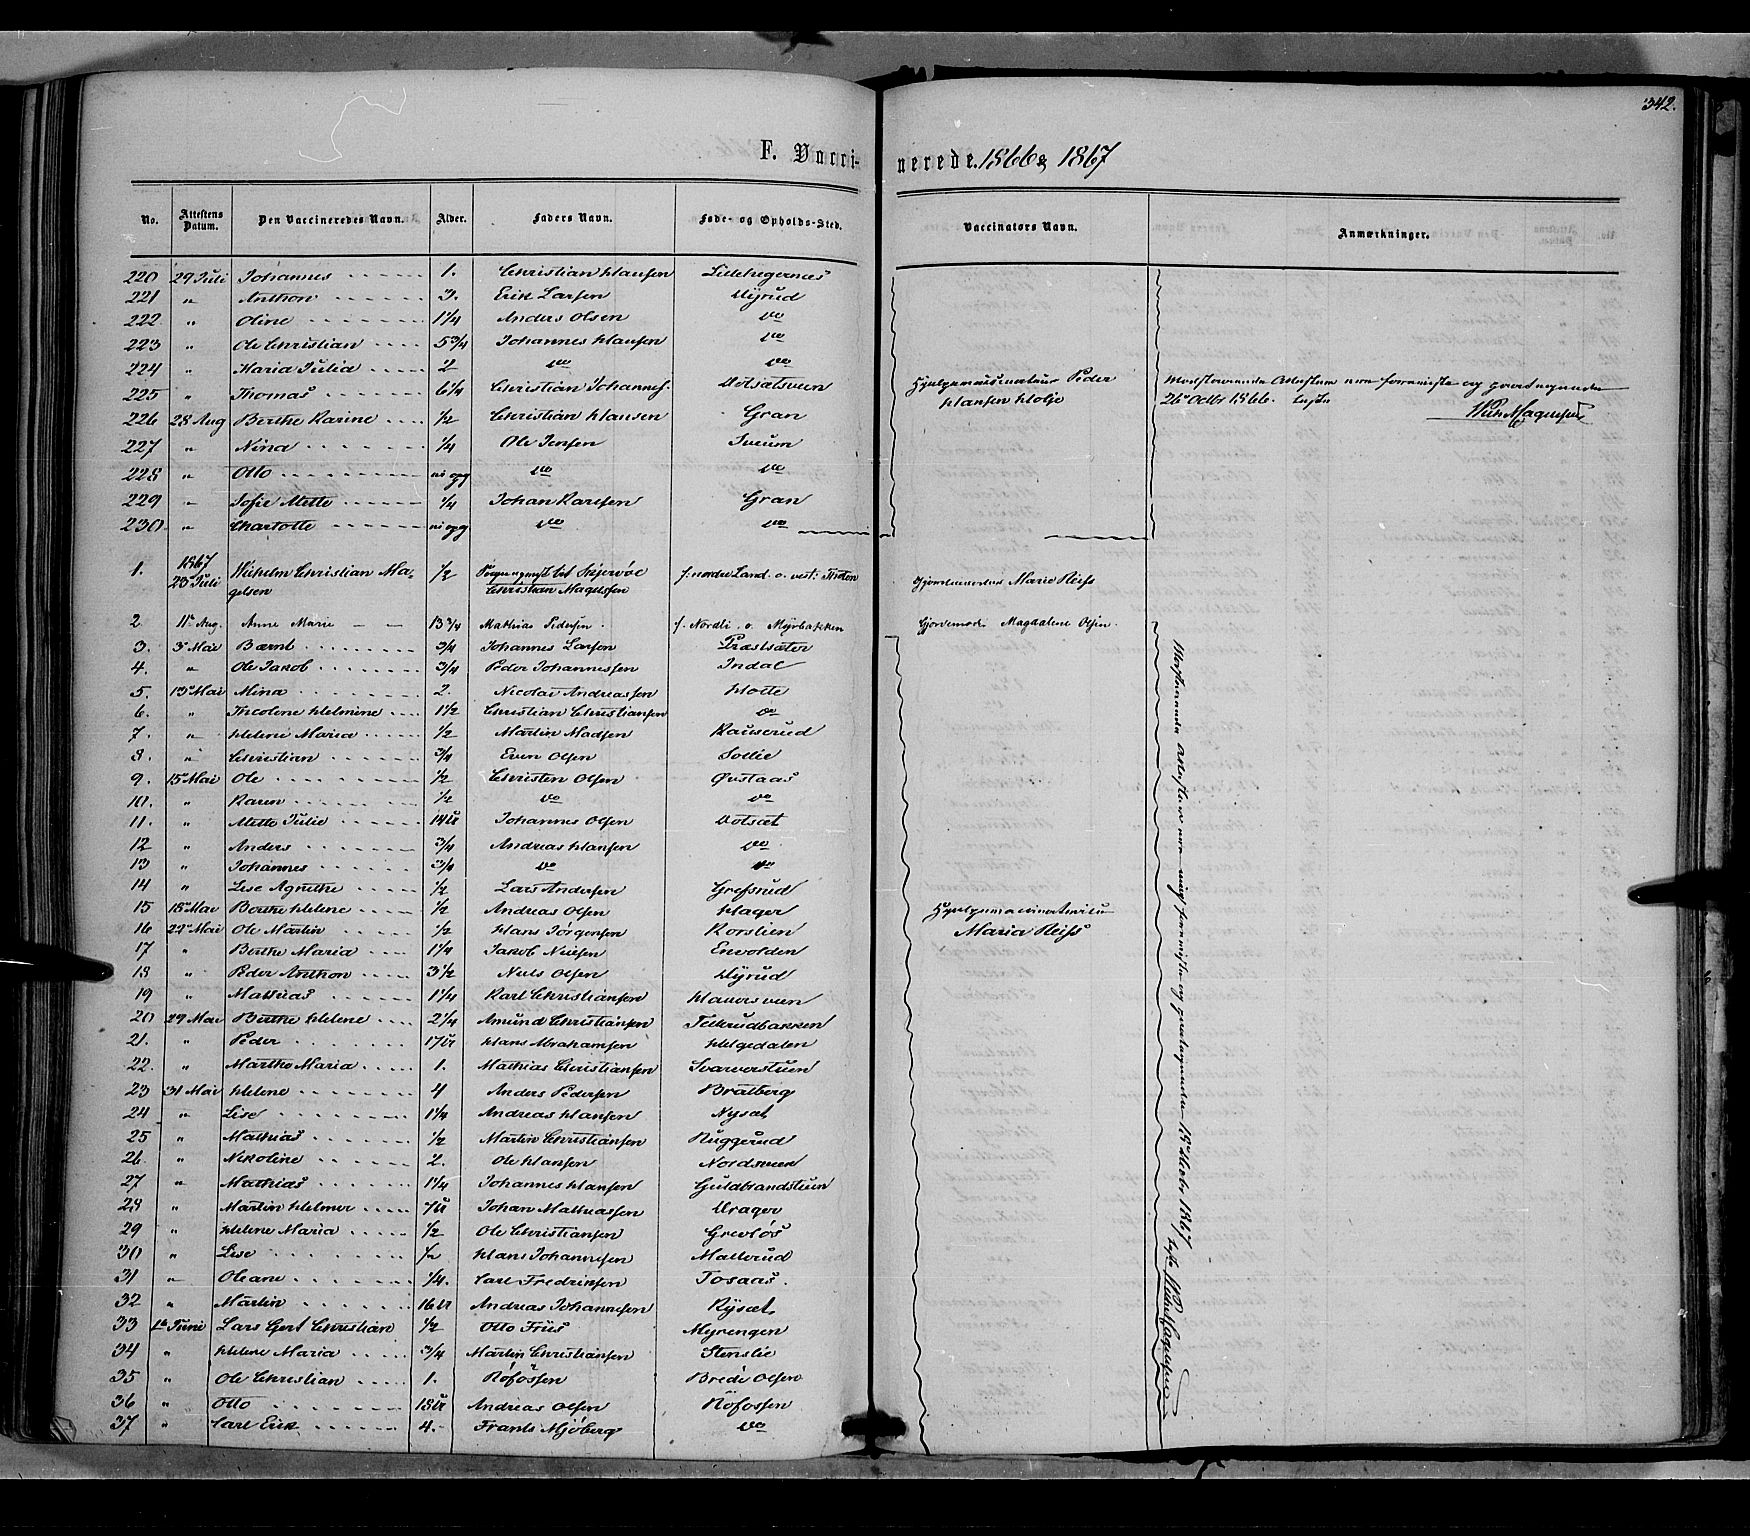 342.
F. Vacci-nerede. 1866 & 1867
No. Attestens Datum. Den Vaccineredes Navn. Alder. Faders Navn. Føde- og Opholds-Sted. Vaccinators Navn. Anmærkninger.
220 29 Juli Johannes 1. Christian Hansen Lillehegernes
221 " Anthon 3. Erik Larsen Myrud
222 " Oline 1 1/4 Anders Olsen do
223 " Ole Christian 5 3/4 Johannes Hansen do
224 " Maria Julia 2 do do
225 " Thomas 6 1/4 Christian Johannes. Peder
Hansen Holje
26 Octbr 1866.
226 28 Aug Berthe Karine 1/2 Christian Hansen Gran
227 " Nina 1/4 Ole Jensen Sveum
228 " Otto do do
229 " Sofie Mette 1/4 Johan Karlsen Gran
230 " Charlotte do do
1. 1867 23 Juli Wilhelm Christian Magelsen 1/2 Christian Magelssen f: nordre Land o. vest: Thoten Marie Reiss
2 11 Aug. Anne Marie 13 3/4 Mathias Pedersen. f. Nordli o. Myrbakken Gjordemod. Magdalene Olsen.
3. 3 Mai Bernt 3/4 Johannes Larsen Præstsæter
4. " Ole Jakob 3/4 Peder Johannessen Indal
5. 13 Mai Mina 2. Nicolai Andreassen
6. " Helmine 1 1/2 Christian Christiansen do
7. " Helene Maria 1/2 Martin Madsen Rauserud
8. " Christian 3/4 Even Olsen Sollie
9. 15 Mai Ole 1/2 Christen Olsen
10. " Karen 1/2 do do
11. " Mette Julie 14 U Johannes Olsen
12 " Anders 3/4 Andreas Hansen do
13 " Johannes 3/4 do do
14 " Lise Agnethe 1/2 Lars Andersen Grefsrud
15 18 Mai Berthe Helene 1/2 Andreas Olsen Hager
Maria Reiss
16 22 Mai Ole Martin 1/2 Hans Jørgensen Korslien
17 " Berthe Maria 1 1/4 Jakob Nielsen Envolden
18 " Peder Anthon 3 1/2 Niels Olsen Myrud
19 " Mathias 1 1/4 Karl Christiansen
20 29 Mai Berthe Helene 2 1/4 Amund Christiansen
21. " Peder 17 U Hans Abrahamsen Helgedalen
22. " Marthe Maria 1. Mathias Christiansen Svarverstuen
23 31 Mai Helene 4 Anders Pedersen Bratberg
24 " Lise 1 1/4 Andreas Hansen Nysæt
25 " Mathias 1/2 Martin Christiansen Ruggerud
26 " Nikoline 2. Ole Hansen Nordsveen
27 " Mathias 1 1/4 Johannes Hansen Guldbrandstuen
28 " Martin Helmer 7 U Johan Mathiassen Krager
29 " Helene Maria 1/2 Ole Christiansen
30 " Lise 1/2 Hans Johannesen Mallerud
31 " Oleane 1/4. Carl Fredriksen Tosaas.
32 " Martin 16 U Andreas Johannesen Rysæt
33 Juni Lars Gert Christian 1/2 Otto Friis Myrengen
34 " Helene Maria 3/4 Martin Christiansen Stenslie
35 " Ole Christian 1. Røfossen Brede Olsen
36 " Otto 18 U Andreas Olsen Røfossen
37 " Carl Erik 4. Frants Mjøberg do